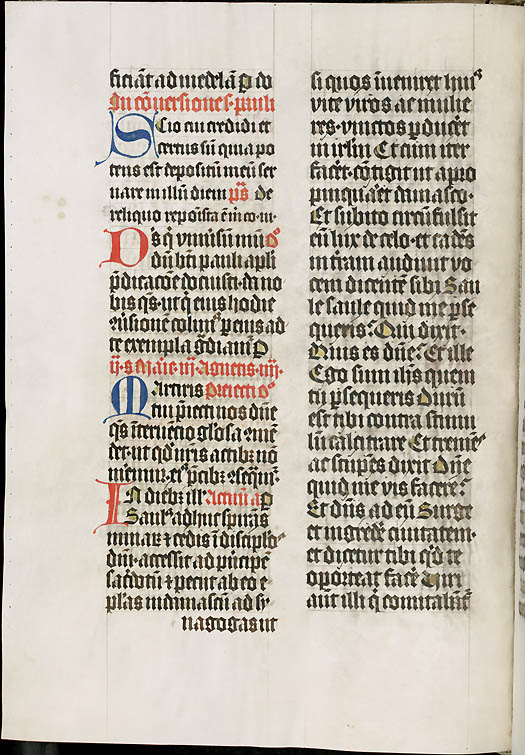 ficiāt ad medelā p do
In cōversione s pauli
Scio cui credidi et
certus sū quia po
tens est depositū meū ser
vare in illū diem ps De
reliquo reposita ē m co iu
Ds q vniūsum mūdū
bti pauli apli
pdicacōne docuisti da no
bis qs ut q eius hodie
9ūsionē colim9 p eius ad
te exempla gdiam p
Martiris Preiecti
tui piecti nos dne
qs intervencio glosa 9mē
det ut qd nris actibz nō
In diebz ill Actuū ap
Saul9 adhuc spirās
minarz et cedis ī discipl9
dni accessit ad pncipē
sacdotū et peciit ab eo e
plas in damascū ad sy
nagogas ut
si quos īveniret hui9
vite viros ac mulie
res vinctos pducēt
in irlm Et cum iter
facēt cōtigit ut apro
pinquaēt damasco
Et subito circūfulsit
eū lux de celo et cadēs
in trām audivit vo
cem dicentē sibi Sau
le saule quid me pse
queris Qui dixit
Quis es dne Et ille
Ego sum ihs quem
tu psequeris Durū
est tibi contra stimu
lū calcitrare Et treme9
ac stupēs dixit Dne
quid me vis facere
Et dns ad eū Surge
et ingredē civitatem
et dicetur tibi qd te
oporteat facē Viri
aūt illi q comitabāt